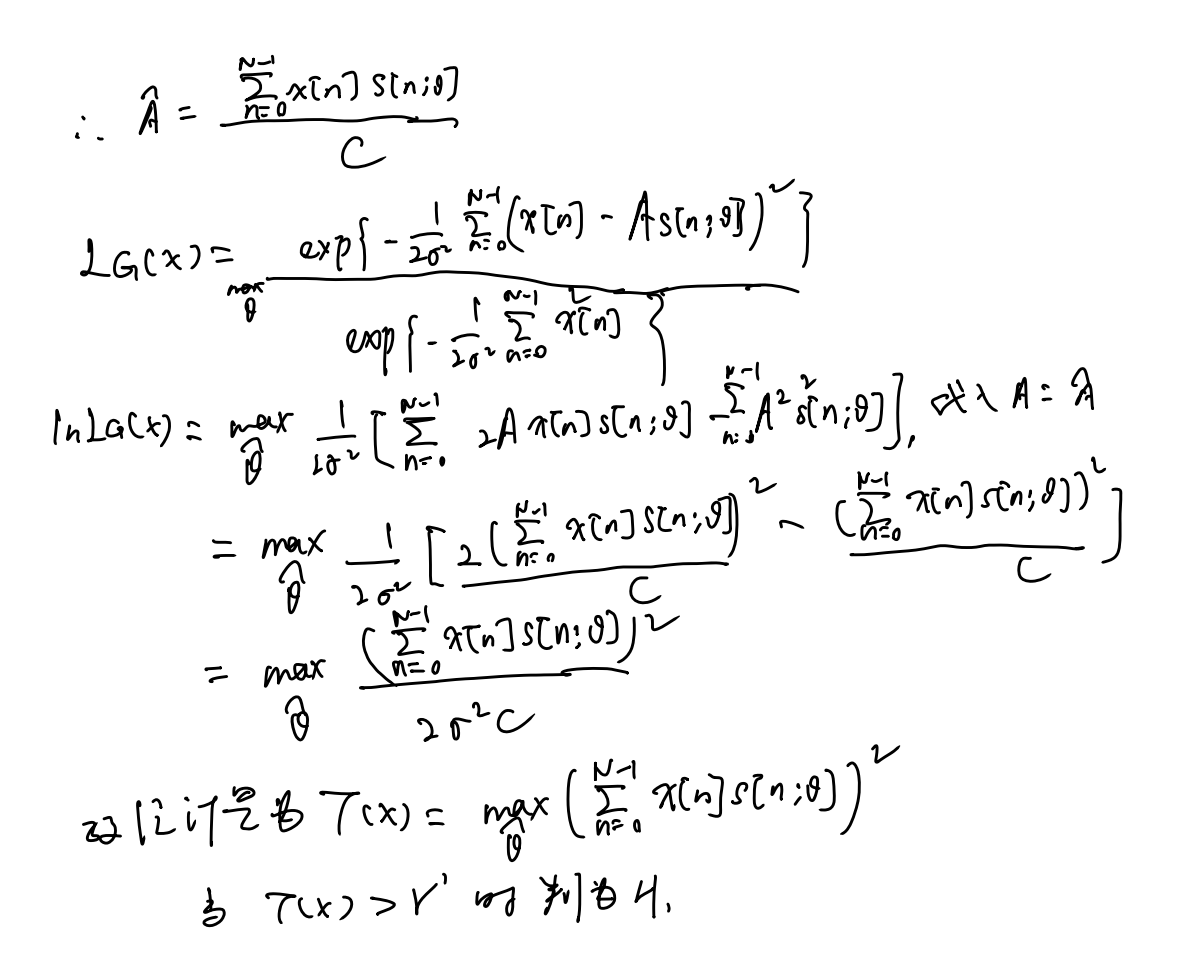 ∴ Â = \frac{\sum_{n=0}^{N-1} x[n] s[n;θ]}{C}
L_G(x) = \max_{θ} \frac{exp{-\frac{1}{2σ^2} \sum_{n=0}^{N-1} (x[n] - A s[n;θ])^2}}{exp{-\frac{1}{2σ^2} \sum_{n=0}^{N-1} x^2[n]}}
ln L_G(x) = \max_{\hat{θ}} \frac{1}{2σ^2} [\sum_{n=0}^{N-1} 2A x[n] s[n;θ] - \sum_{n=0}^{N-1} A^2 s^2[n;θ]], 代入 A = Â
= \max_{\hat{θ}} \frac{1}{2σ^2} [\frac{2(\sum_{n=0}^{N-1} x[n] s[n;θ])^2}{C} - \frac{(\sum_{n=0}^{N-1} x[n] s[n;θ])^2}{C}]
= \max_{\hat{θ}} \frac{(\sum_{n=0}^{N-1} x[n] s[n;θ])^2}{2σ^2 C}
计量为 T(x) = \max_{\hat{θ}} (\sum_{n=0}^{N-1} x[n] s[n;θ])^2
当 T(x) > γ' 时 判为 H_1